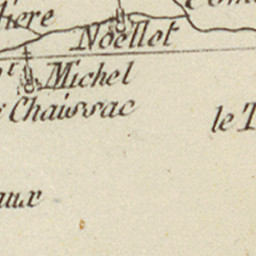 liere
Noellet
Michel
Chaissac
le T
aux